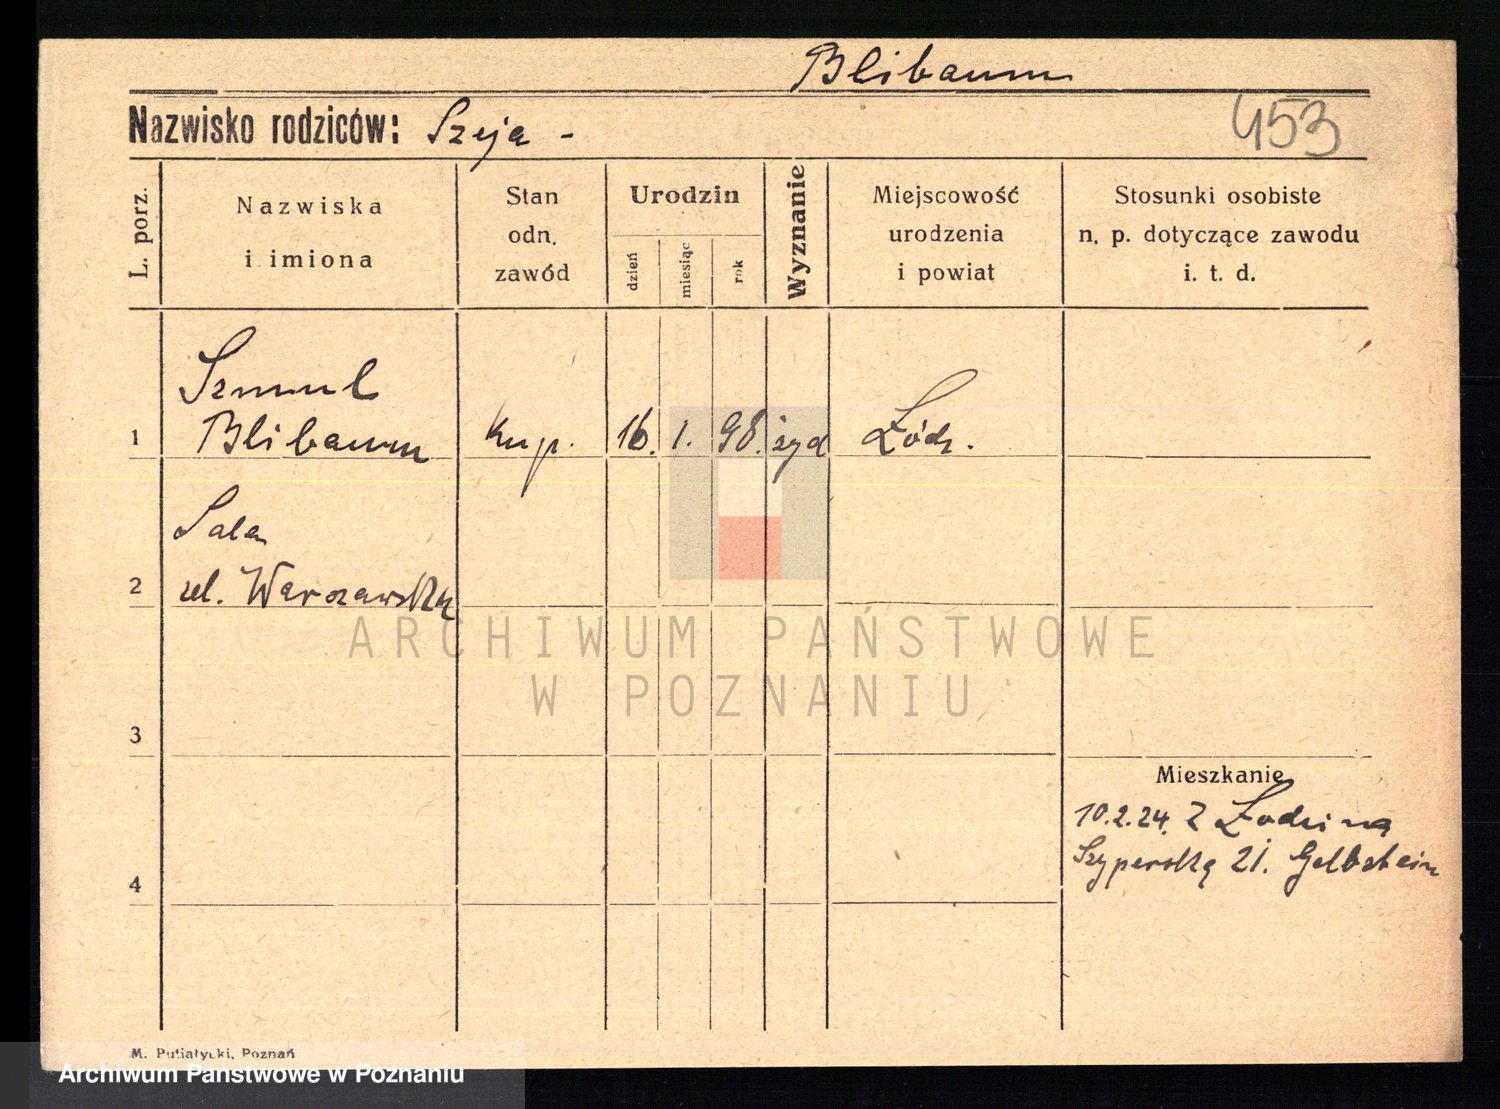 Blibaum
Nazwisko rodziców: Szeja -
453
L. porz.
Nazwiska
i imiona
Stan
odn.
zawód
Urodzin
dzień
miesiąc
rok
Wyznanie
Miejscowość
urodzenia
i powiat
Stosunki osobiste
n. p. dotyczące zawodu
i. t. d.
Szmul
1 Blibaum Kup. 16. 1. 98. żyd Łódź.
Sala
2 Warszawska
3
Mieszkanie
10.2.24. Z Łodzi na
4 Szyperską 21. Gelbstein
ARCHIWUM PAŃSTWOWE
W POZNANIU
M. Putiatycki, Poznań
Archiwum Państwowe w Poznaniu